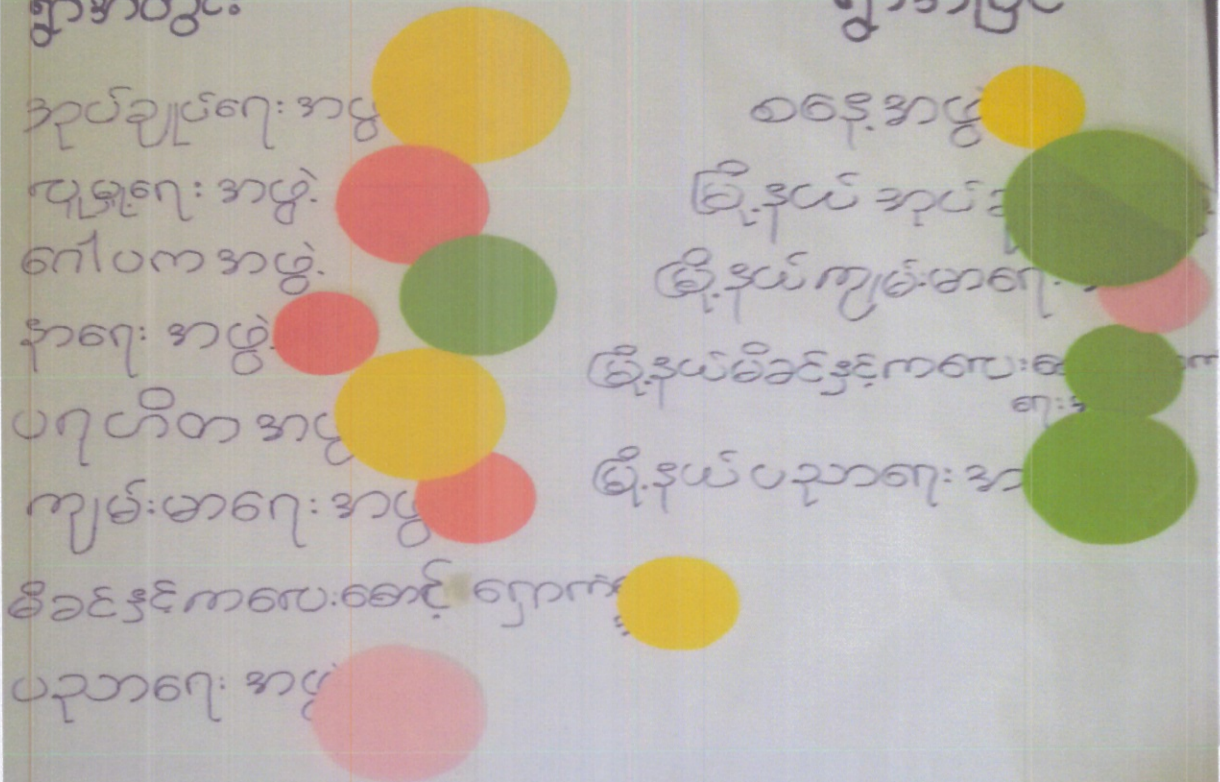 ရွာအတွင်း
အုပ်ချုပ်ရေး အဖွဲ့
လူမှုရေး အဖွဲ့.
ဂေါပက အဖွဲ့.
နာရေး အဖွဲ့.
ပရဟိတ အဖွဲ့
ကျမ်းမာရေး အဖွဲ့
မိခင်နှင့်ကလေးစောင့် ရှောက်
ပညာရေး အဖွဲ့
ရွာအပြင်
စနေ့ အဖွဲ့
မြို့နယ် အုပ်
မြို့နယ်ကျမ်းမာရေး
မြို့နယ်မိခင်နှင့်ကလေး
ရေး
မြို့နယ် ပညာရေး အ